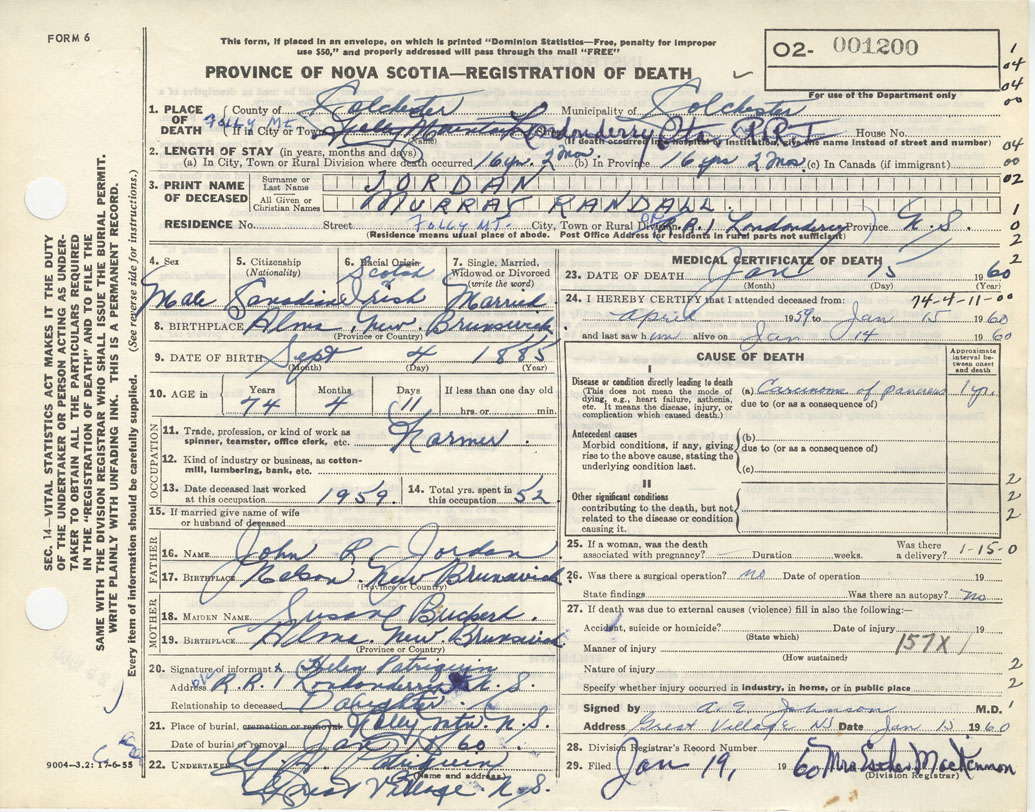 FORM 6
This form, if placed in an envelope, on which is printed "Dominion Statistics—Free, penalty for improper
use $50," and properly addressed will pass through the mail "FREE"
PROVINCE OF NOVA SCOTIA—REGISTRATION OF DEATH
O2- 001200
For use of the Department only
1. PLACE OF DEATH County of Colchester Municipality of Colchester
Folly Mt (If in City or Town Londonderry House No.
(Name) (If death occurred in a hospital or institution, give the name instead of street and number)
2. LENGTH OF STAY (in years, months and days)
(a) In City, Town or Rural Division where death occurred 16 yrs. 2 mos. (b) In Province 76 yrs 2 mos (c) In Canada (if immigrant)
3. PRINT NAME OF DECEASED Surname or Last Name JORDAN
All Given or Christian Names MURRAY RANDALL
RESIDENCE No. Street Folly Mt. City, Town or Rural Division R.R.1 Londonderry Province N.S.
(Residence means usual place of abode. Post Office Address for residents in rural parts not sufficient)
4. Sex Male
5. Citizenship (Nationality) Canadian
6. Racial Origin Scotch Irish
7. Single, Married, Widowed or Divorced (write the word) Married
8. BIRTHPLACE Alma, New Brunswick
(Province or Country)
9. DATE OF BIRTH Sept 4 1885
(Month) (Day) (Year)
10. AGE in Years 74 Months 4 Days 11 If less than one day old hrs. or min.
OCCUPATION
11. Trade, profession, or kind of work as spinner, teamster, office clerk, etc. Farmer
12. Kind of industry or business, as cotton-mill, lumbering, bank, etc.
13. Date deceased last worked at this occupation 1959 14. Total yrs. spent in this occupation 52
15. If married give name of wife or husband of deceased
FATHER
16. NAME John R. Jordan
17. BIRTHPLACE Nelson, New Brunswick
(Province or Country)
MOTHER
18. MAIDEN NAME Susan
19. BIRTHPLACE Alma, New Brunswick
(Province or Country)
20. Signature of informant x Helen Patriquin
Address R.R.1 Londonderry N.S.
Relationship to deceased Daughter
21. Place of burial, cremation or removal Folley Mtn N.S.
Date of burial or removal Jan 18 60
22. UNDERTAKER Patriquin
(Name and address)
Great Village N.S.
MEDICAL CERTIFICATE OF DEATH
23. DATE OF DEATH Jan 15 1960
(Month) (Day) (Year)
24. I HEREBY CERTIFY that I attended deceased from: 74-4-11-00
April 1959 to Jan 15 1960
and last saw him alive on Jan 14 1960
CAUSE OF DEATH
Approximate interval between onset and death
I
Disease or condition directly leading to death
(This does not mean the mode of dying, e.g., heart failure, asthenia, etc. It means the disease, injury, or complication which caused death.)
(a) Carcinoma of pancreas 1 yr.
due to (or as a consequence of)
Antecedent causes
Morbid conditions, if any, giving rise to the above cause, stating the underlying condition last.
(b)
due to (or as a consequence of)
(c)
II
Other significant conditions contributing to the death, but not related to the disease or condition causing it.
25. If a woman, was the death associated with pregnancy? Duration weeks. Was there a delivery? 1-15-0
26. Was there a surgical operation? no Date of operation 19
State findings Was there an autopsy? no
27. If death was due to external causes (violence) fill in also the following:—
Accident, suicide or homicide? Date of injury 19
(State which)
Manner of injury 157X
(How sustained)
Nature of injury
Specify whether injury occurred in industry, in home, or in public place
Signed by A. E. Johnson M.D.
Address Great Village NS Date Jan 15 1960
28. Division Registrar's Record Number
29. Filed Jan 19, 1960 Mrs Esther MacKinnon
(Division Registrar)
9004—3.2: 17-6-55
SEC. 14—VITAL STATISTICS ACT MAKES IT THE DUTY
OF THE UNDERTAKER OR PERSON ACTING AS UNDER-
TAKER TO OBTAIN ALL THE PARTICULARS REQUIRED
IN THE "REGISTRATION OF DEATH" AND TO FILE THE
SAME WITH THE DIVISION REGISTRAR WHO SHALL ISSUE THE BURIAL PERMIT.
WRITE PLAINLY WITH UNFADING INK. THIS IS A PERMANENT RECORD.
Every item of information should be carefully supplied. (See reverse side for instructions.)